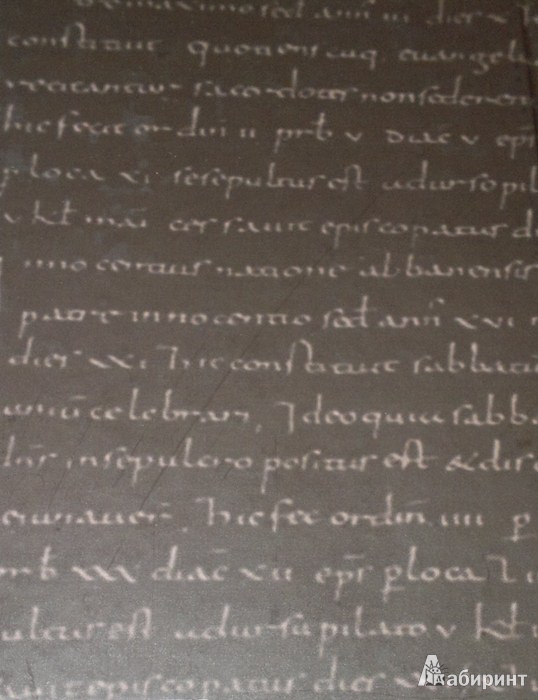 maximo sed ann̄ iii dies x
constituit quotienscuq euangelia
recitantur sacerdotes non sederent
hic fecit ordin̄ ii prb̄ v diac̄ v ep̄i
p loca xi se sepultus est ad ursopil
v kł mai cessauit episcopatus d
innocentius natione albanensis
patre innocentio sed ann̄ xvi
dies xxi hic constituit sabbatū
ieiuniū celebrari, ideo quia sabb
dn̄s in sepulcro positus est & dis
ieiunauer̄. hic fec ordin̄ iiii p
prb̄ xxx diac̄ xii ep̄s p loca
sepultus est ad ursupilato v kł
cessauit episcopatus dies
Лабиринт